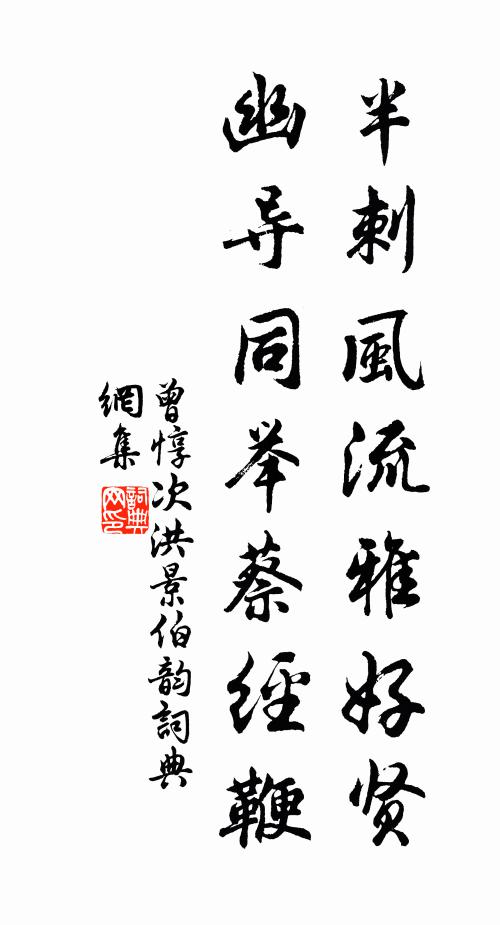 半刺風流雅好贤
幽导同举蔡經鞭
曾惇次洪景伯韵詞典
網集
詞典网印